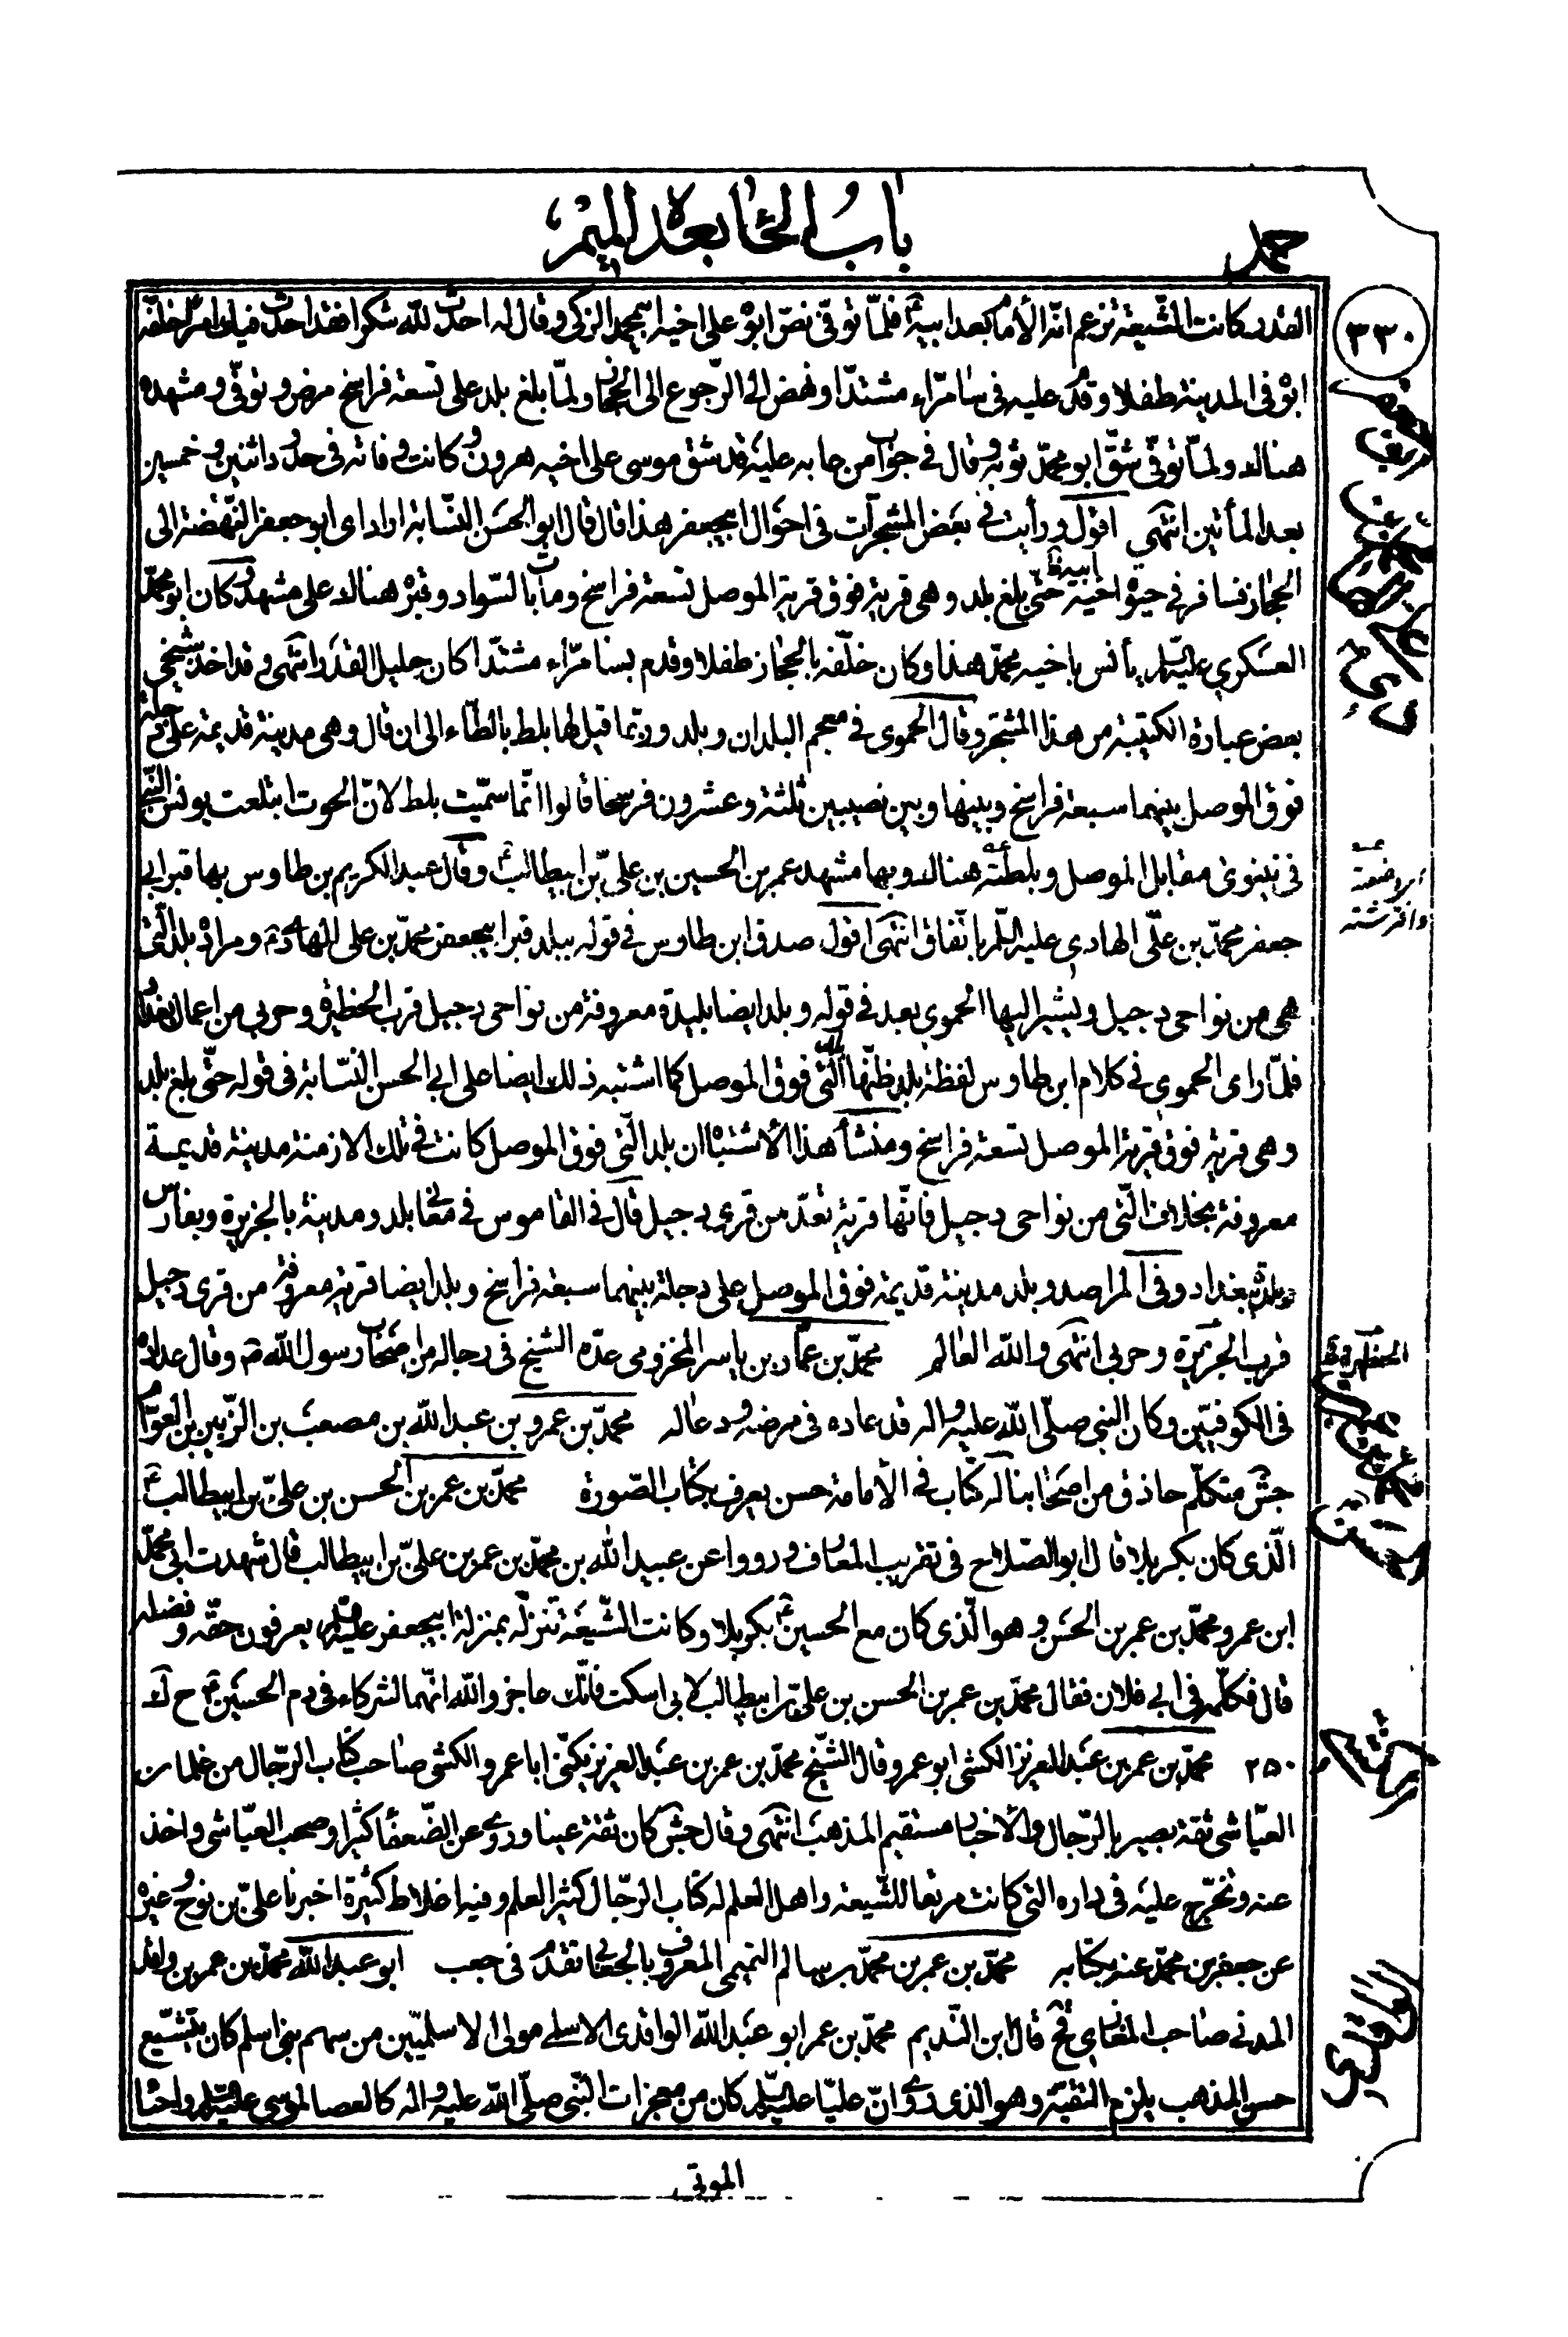 باب الحا بعده الميم
محمد
٣٣٠
القدر كانت الشيعة تزعم انه الأمام بعد ابيه ع فلمّا توفّى نصّ ابوه على اخيه ابيمحمد الزكى وقال له احدث للّه شكرا فقد احدث فيك امرا خلّفه
ابوه فى المدينة طفلا وقدم عليه فى سامرّاء مشتدّا ونهض الى الرّجوع الى الحجاز ولمّا بلغ بلد على تسعة فراسخ مرض وتوفّى ومشهده
هناك ولمّا توفّى شقّ ابو محمّد ثوبه وقال فى جواب من عابه عليه قد شق موسى على اخيه هرون وكانت وفاته فى حدود اثنين وخمسين
بعد المأتين انتهى اقول ورأيت فى بعض المشجرات فى احوال ابيجعفر هذا قال قال ابو الحسن النسّابة اراد اى ابو جعفر النّهضة الى
الحجاز فسافر فى حيوة اخيه ابيه ظ حتّى بلغ بلد وهى قرية فوق قرية الموصل تسعة فراسخ ومات بالسّواد وقبره هناك على مشهد وكان ابو محمّد
العسكرى عليه السلام يأنس باخيه محمّد هذا وكان خلّفه بالحجاز طفلا وقدم بسامرّاء مشتدّا كان جليل القدر انتهى وقد اخذ شيخى
بعض عبارة الكتيبة من هذا المشجر وقال الحموى فى معجم البلدان وبلد وربّما قيل لها بلط بالطّاء الى ان قال وهى مدينة قديمة على دجلة
فوق الموصل بينهما سبعة فراسخ وبينها وبين نصيبين ثلثة وعشرون فرسخا قالوا انّما سمّيت بلط لانّ الحوت ابتلعت يونس النّبى
فى نينوى مقابل الموصل وبلطته هناك وبها مشهد عمر بن الحسين بن علىّ بن ابيطالب ع وقال عبد الكريم بن طاوس بها قبر ابى
جعفر محمّد بن علىّ الهادى عليه السّلام باتّفاق انتهى اقول صدق ابن طاوس فى قوله ببلد قبر ابيجعفر محمّد بن على الهادى ومراده بلد الّتى
هى من نواحى دجيل ويشير اليها الحموى بعد فى قوله وبلد ايضا بليدة معروفة من نواحى دجيل قرب الحظيرة وحربى من اعمال بغداد
فلمّا راى الحموى فى كلام ابن طاوس لفظة بلد ظنّها الّتى فوق الموصل كما اشتبه ذلك ايضا على ابى الحسن النسّابة فى قوله حتّى بلغ بلد
وهى قرية فوق قرية الموصل تسعة فراسخ ومنشأ هذا الأشتباه ان بلد الّتى فوق الموصل كانت فى تلك الازمنة مدينة قديمة
معروفة بخلاف الّتى من نواحى دجيل فانّها قرية تعدّ من قرى دجيل قال فى القاموس فى معانى بلد ومدينة بالجزيرة وبفارس
وبلدة ببغداد وفى المراصد وبلد مدينة قديمة فوق الموصل على دجلة بينهما سبعة فراسخ وبلد ايضا قرية معروفة من قرى دجيل
قرب الجزيرة وحربى انتهى واللّه العالم محمّد بن عمّار بن ياسر المخزومى عدّه الشيخ فى رجاله من اصحاب رسول اللّه ص وقال عداده
فى الكوفيّين وكان النبى صلّى اللّه عليه واله قد عاده فى مرضه ودعا له محمّد بن عمرو بن عبد اللّه بن مصعب بن الزّبير بن العوّام
جش متكلّم حاذق من اصحابنا له كتاب فى الأمامة حسن يعرف بكتاب الصّورة محمّد بن عمر بن الحسن بن علىّ بن ابيطالب ع
الّذى كان بكربلا قال ابو الصّلاح فى تقريب المعارف ورووا عن عبيد اللّه بن محمّد بن عمر بن علىّ بن ابيطالب قال شهدت ابى محمّد
ابن عمر ومحمّد بن عمر بن الحسن وهو الّذى كان مع الحسين ع بكربلا وكانت الشّيعة تنزله بمنزلة ابيجعفر عليه السلام يعرفون حقّه وفضله
قال فكلّمه فى ابى فلان فقال محمّد بن عمر بن الحسن بن علىّ بن ابيطالب لابى اسكت فانّك عاجز واللّه انّهما لشركاء فى دم الحسين ع
٢٥٠ محمّد بن عمر بن عبد العزيز الكشى ابو عمرو قال الشّيخ محمّد بن عمر بن عبد العزيز يكنّى ابا عمرو الكشى صاحب كتاب الرّجال من غلمان
العيّاشى ثقة بصير بالرّجال والأخبار مستقيم المذهب انتهى وقال جش كان ثقة عينا وروى عن الضّعفاء كثيرا وصحب العيّاشى واخذ
عنه وتخرّج عليه فى داره التى كانت مرتعا للشّيعة واهل العلم له كتاب الرّجال كثير العلم وفيه اغلاط كثيرة اخبرنا علىّ بن نوح وغيره
عن جعفر بن محمّد عنه بكتابه محمّد بن عمر بن محمّد بن سالم التميمى المعروف بالجعابى تقدّم فى جعب ابو عبد اللّه محمّد بن عمر بن واقد
المدنى صاحب المغازى قال ابن النّديم محمّد بن عمر ابو عبد اللّه الواقدى الاسلمى مولى الاسلميّين من سهم بنى اسلم كان يتشيّع
حسن المذهب يلزم التقيّة وهو الذى روى انّ عليّا عليه السلام كان من معجزات النّبى صلّى اللّه عليه واله كالعصا لموسى عليه السلام واحياء
الموتى
الحظيرة
الكشى
الواقدى